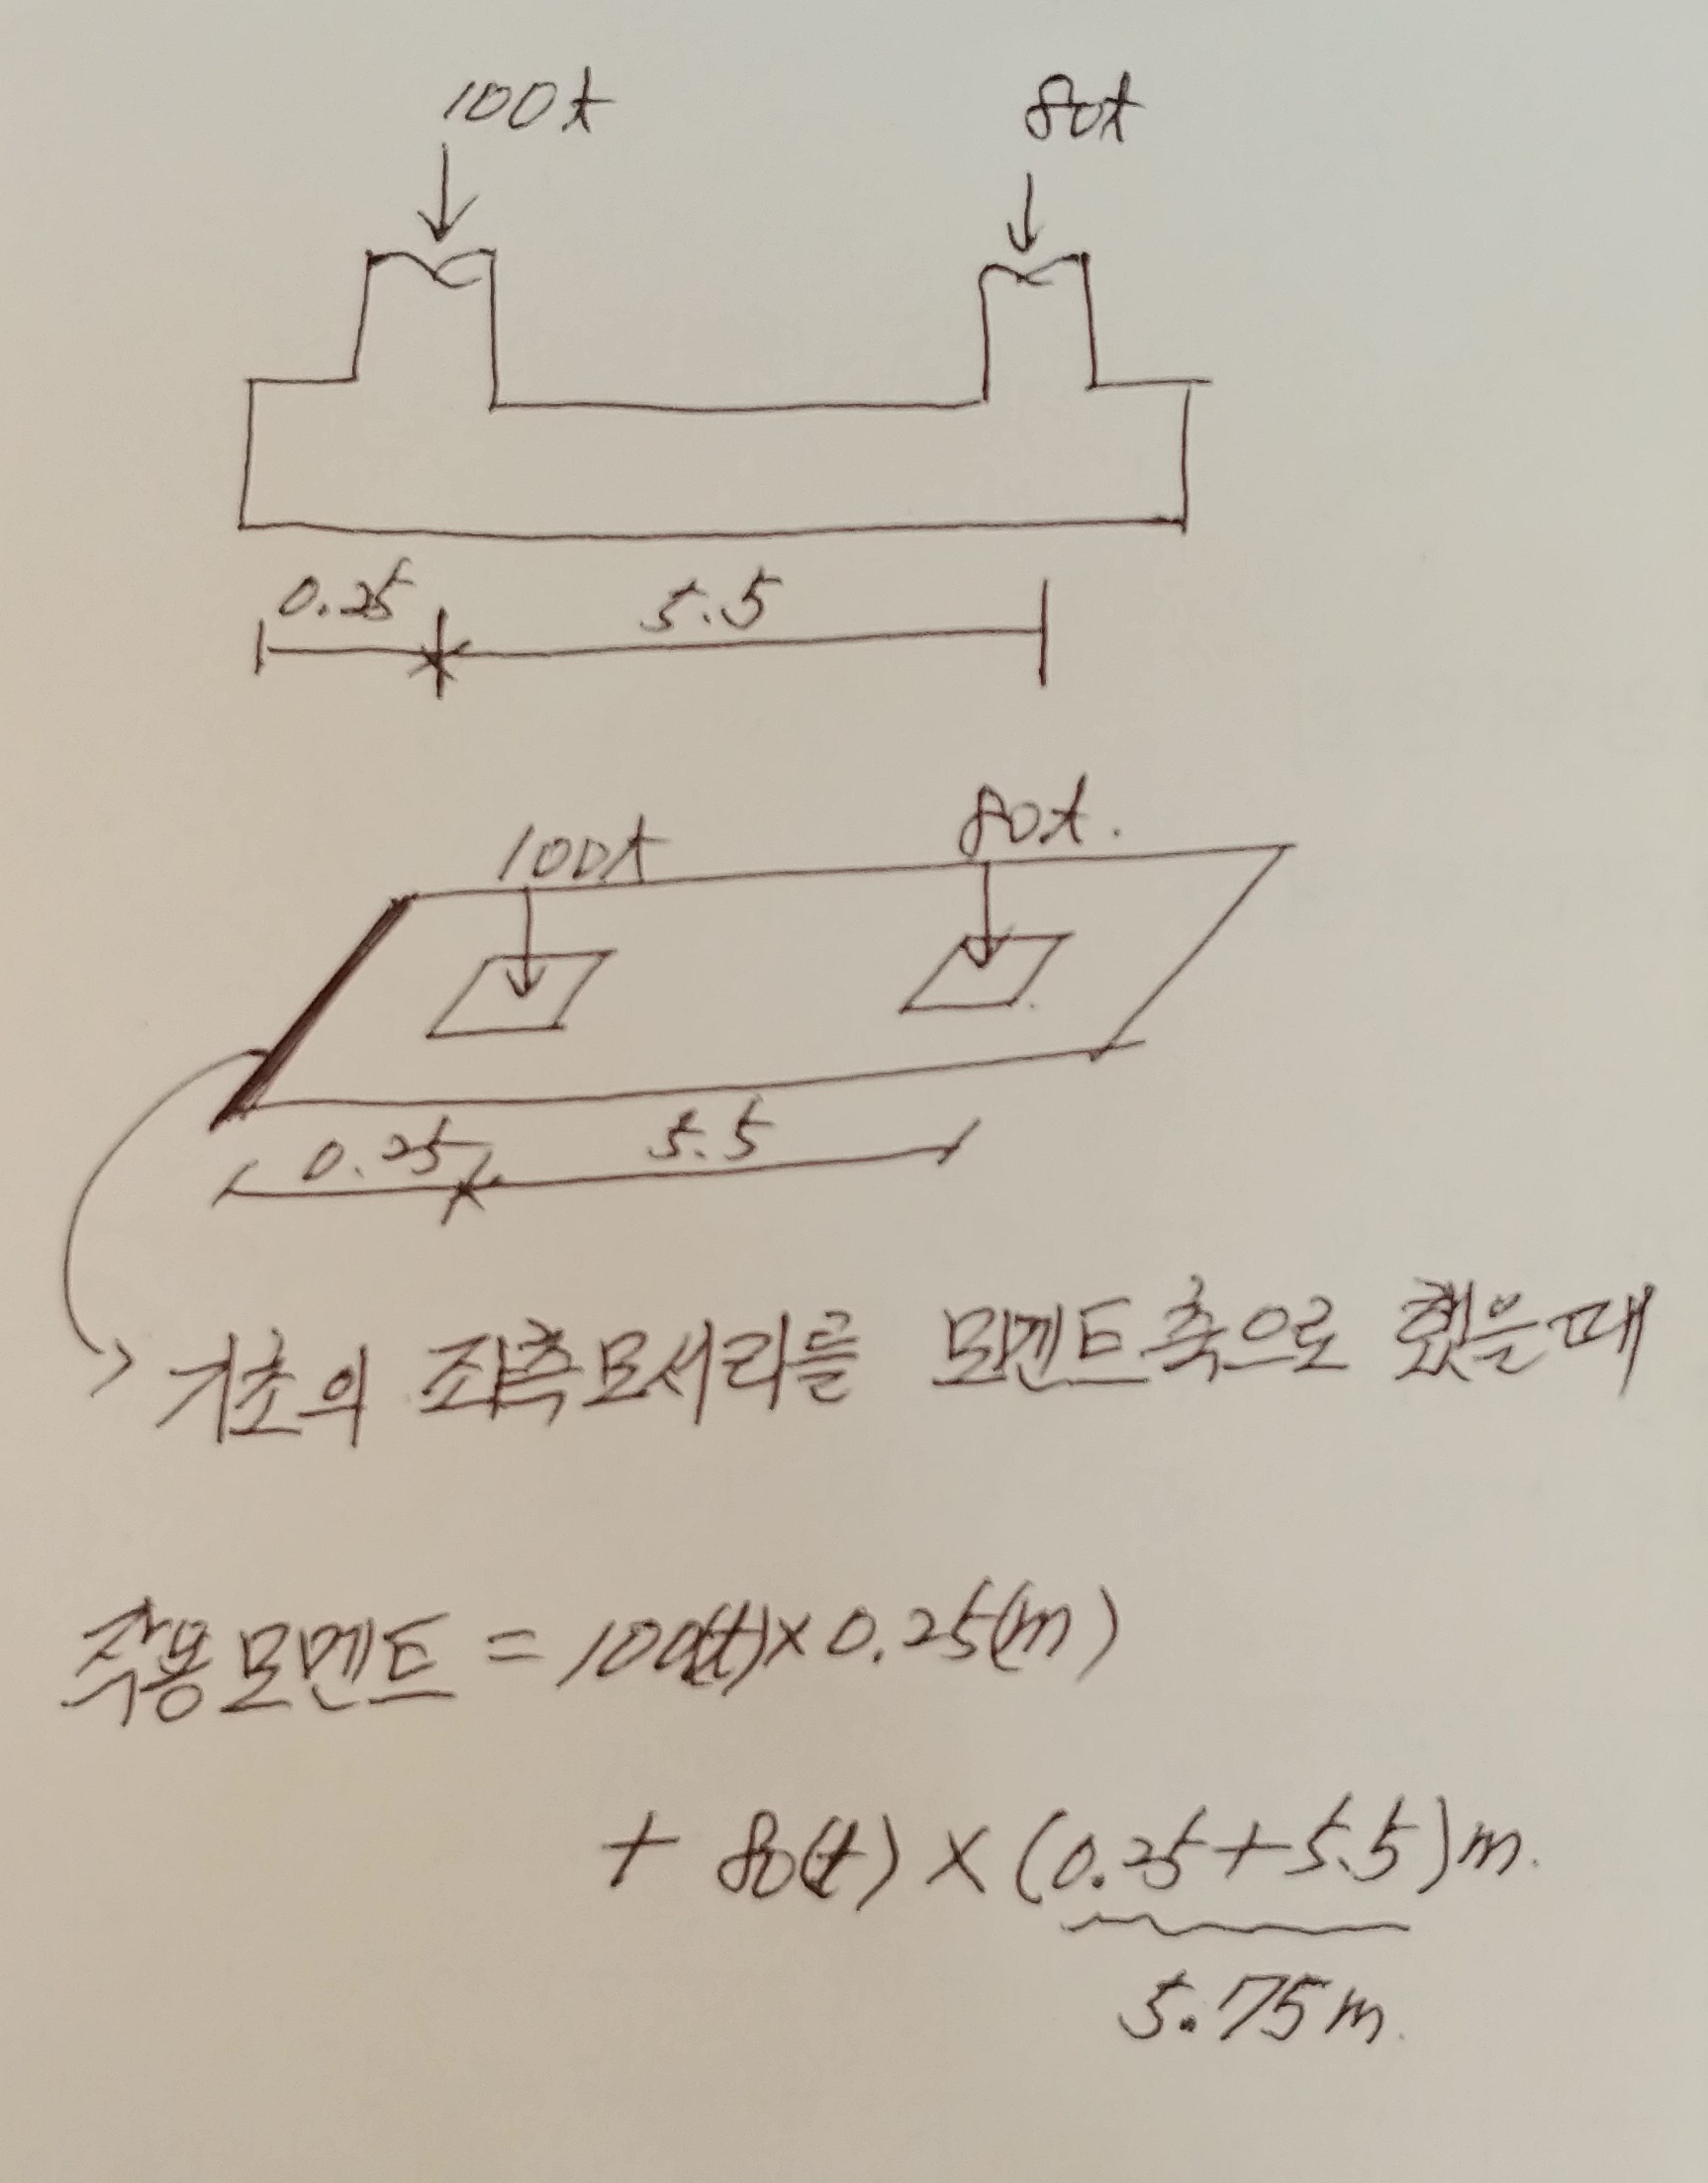 100t 80t
0.25 5.5
100t 80t.
0.25 5.5
기초의 좌측모서리를 모멘트축으로 했을때
작용모멘트 = 100(t)×0.25(m)
+ 80(t) × (0.25+5.5)m.
5.75m.